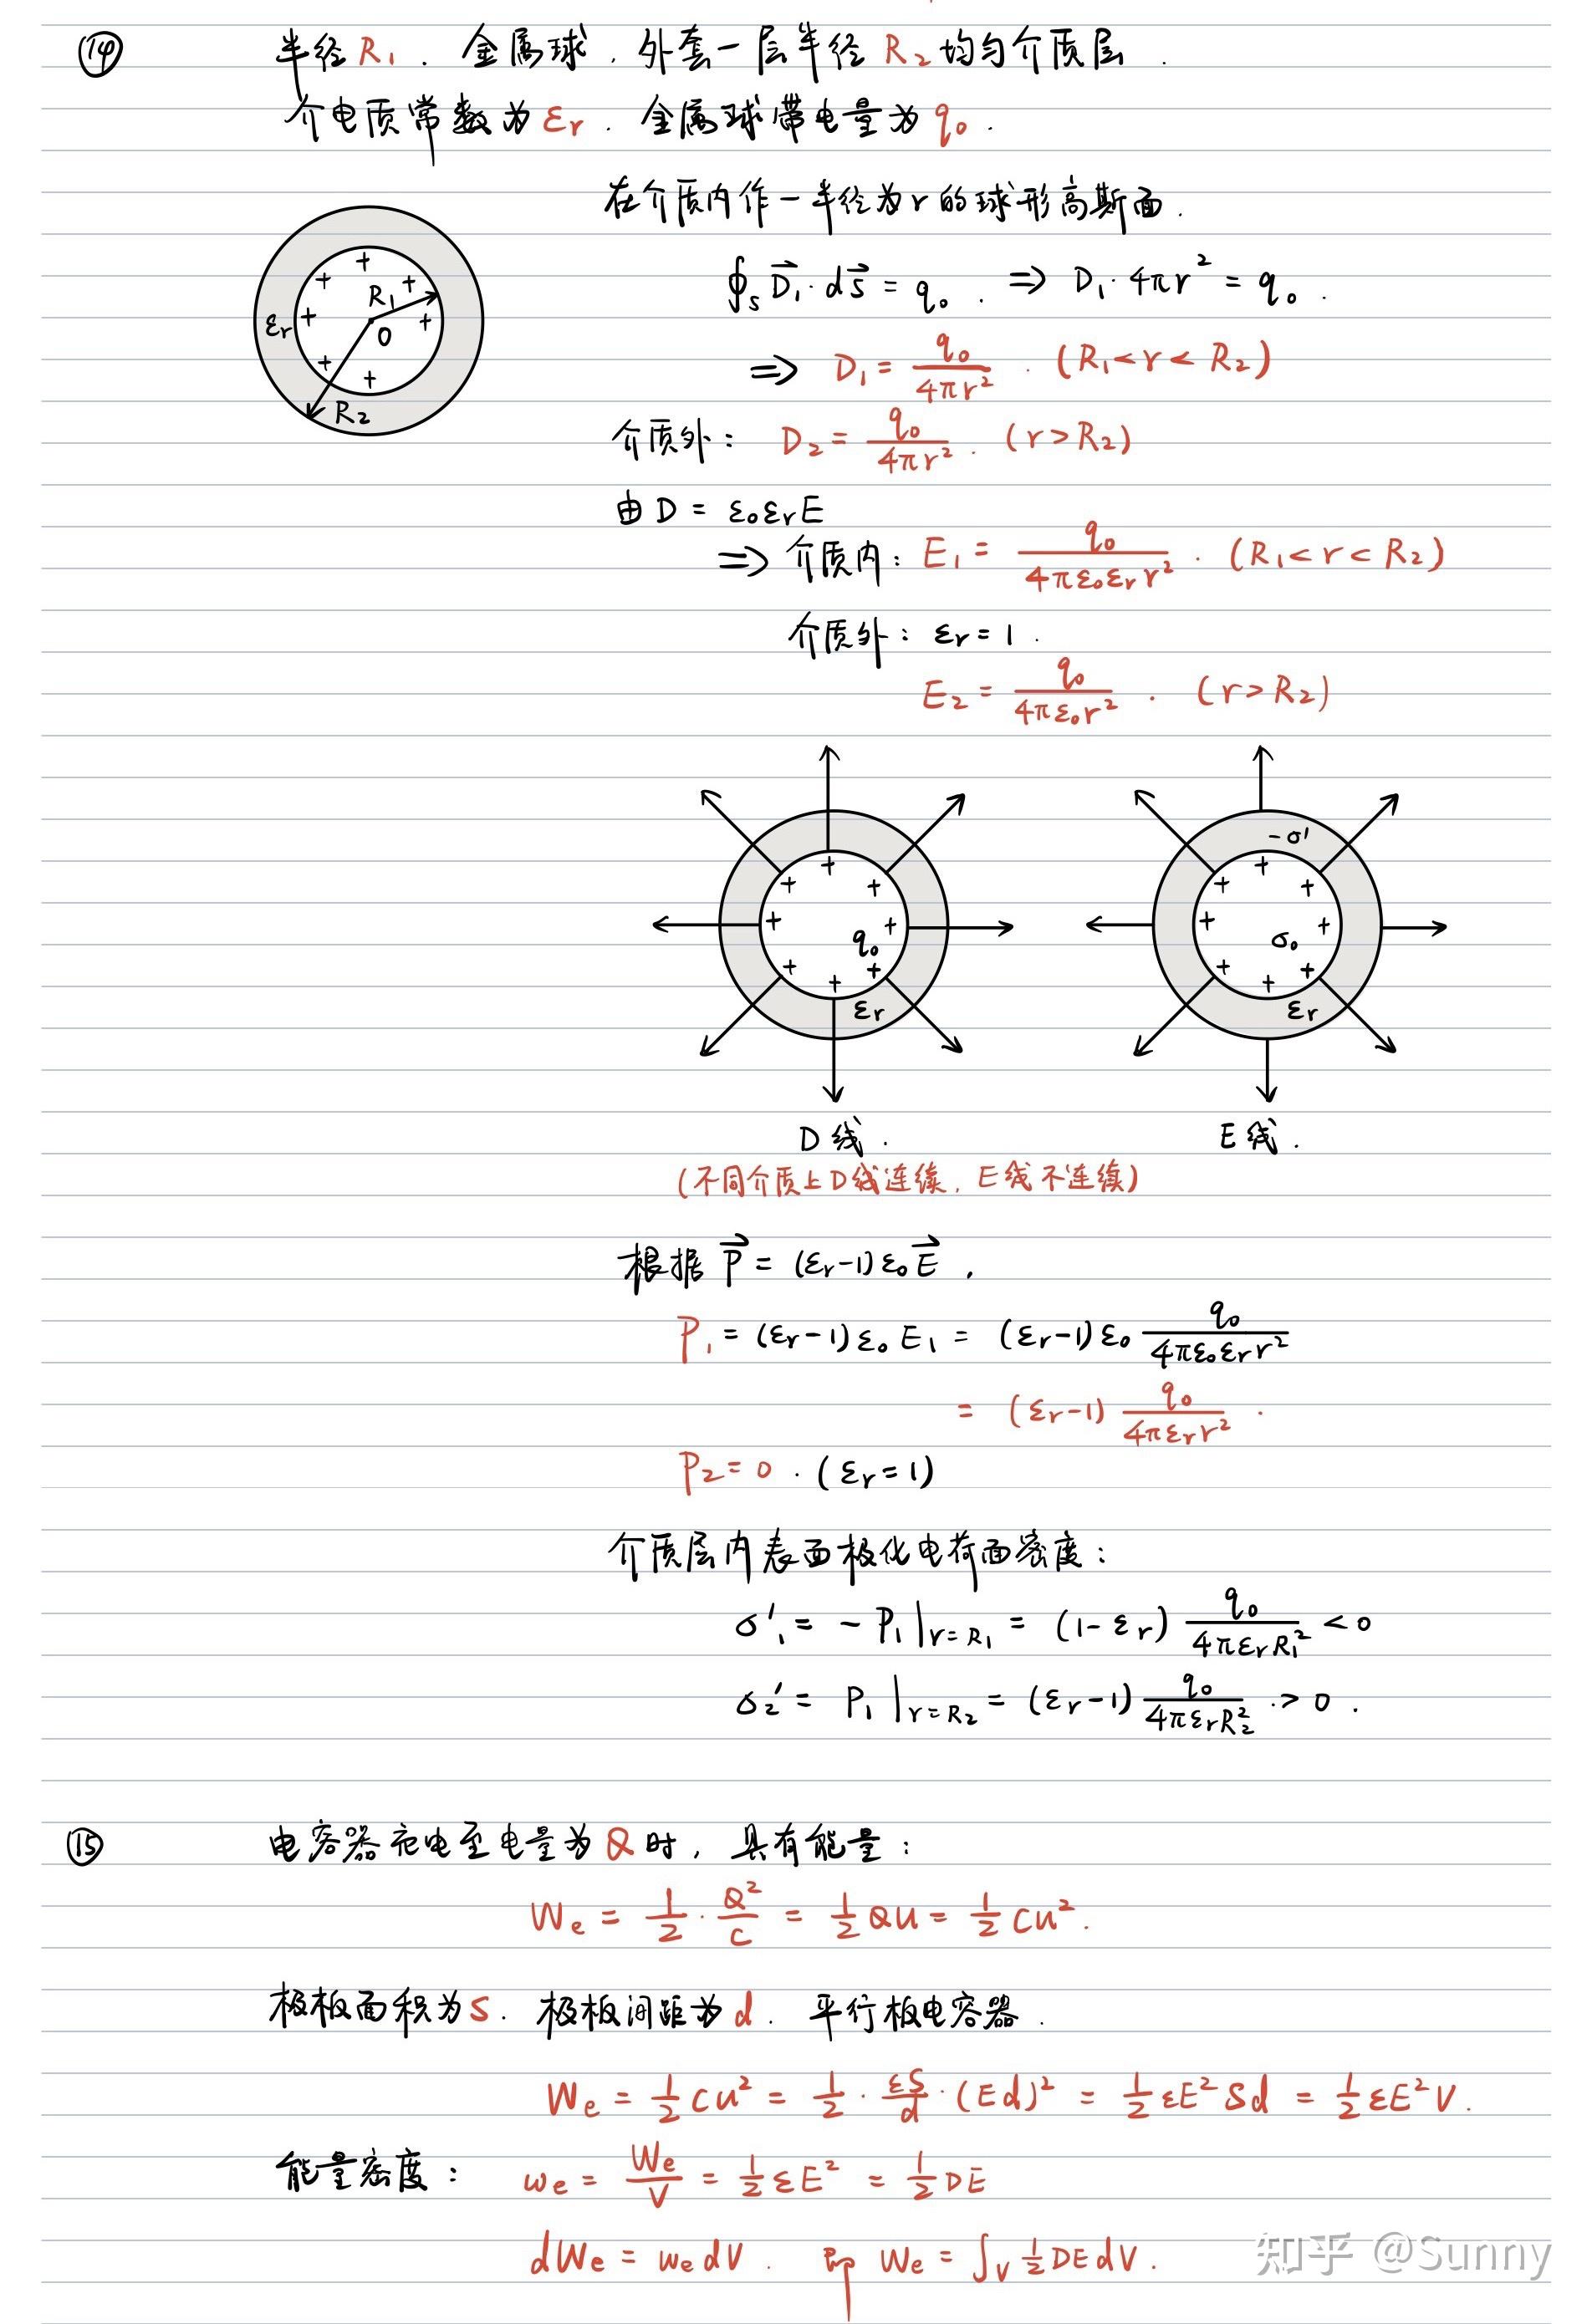 ⑭ 半径R₁. 金属球. 外套一层半径R₂均匀介质层.
介电质常数为εr. 金属球带电量为q₀.
在介质内作一半径为r的球形高斯面.
∮s D⃗₁·dS⃗ = q₀. ⇒ D₁·4πr² = q₀.
⇒ D₁ = q₀/4πr². (R₁<r<R₂)
介质外: D₂ = q₀/4πr². (r>R₂)
由D = ε₀εrE
⇒ 介质内: E₁ = q₀/4πε₀εrr². (R₁<r<R₂)
介质外: εr = 1.
E₂ = q₀/4πε₀r². (r>R₂)
+ + + + + + +
R₁
εr
O
R₂
+ + + + + + + +
q₀
εr
-σ'
+ + + + + + + +
σ₀
εr
D线. E线.
(不同介质上D线连续, E线不连续)
根据 P⃗ = (εr-1)ε₀E⃗,
P₁ = (εr-1)ε₀E₁ = (εr-1)ε₀ q₀/4πε₀εrr²
= (εr-1) q₀/4πεrr².
P₂ = 0. (εr=1)
介质层内表面极化电荷面密度:
σ'₁ = -P₁|r=R₁ = (1-εr) q₀/4πεrR₁² < 0
σ₂' = P₁|r=R₂ = (εr-1) q₀/4πεrR₂² .> 0.
⑮ 电容器充电至电量为Q时, 具有能量:
We = 1/2·Q²/C = 1/2 QU = 1/2 CU².
极板面积为S. 极板间距为d. 平行板电容器.
We = 1/2 CU² = 1/2·εS/d·(Ed)² = 1/2 εE²Sd = 1/2 εE²V.
能量密度: we = We/V = 1/2 εE² = 1/2 DE
dWe = we dV. 即 We = ∫V 1/2 DE dV.
知乎 @Sunny